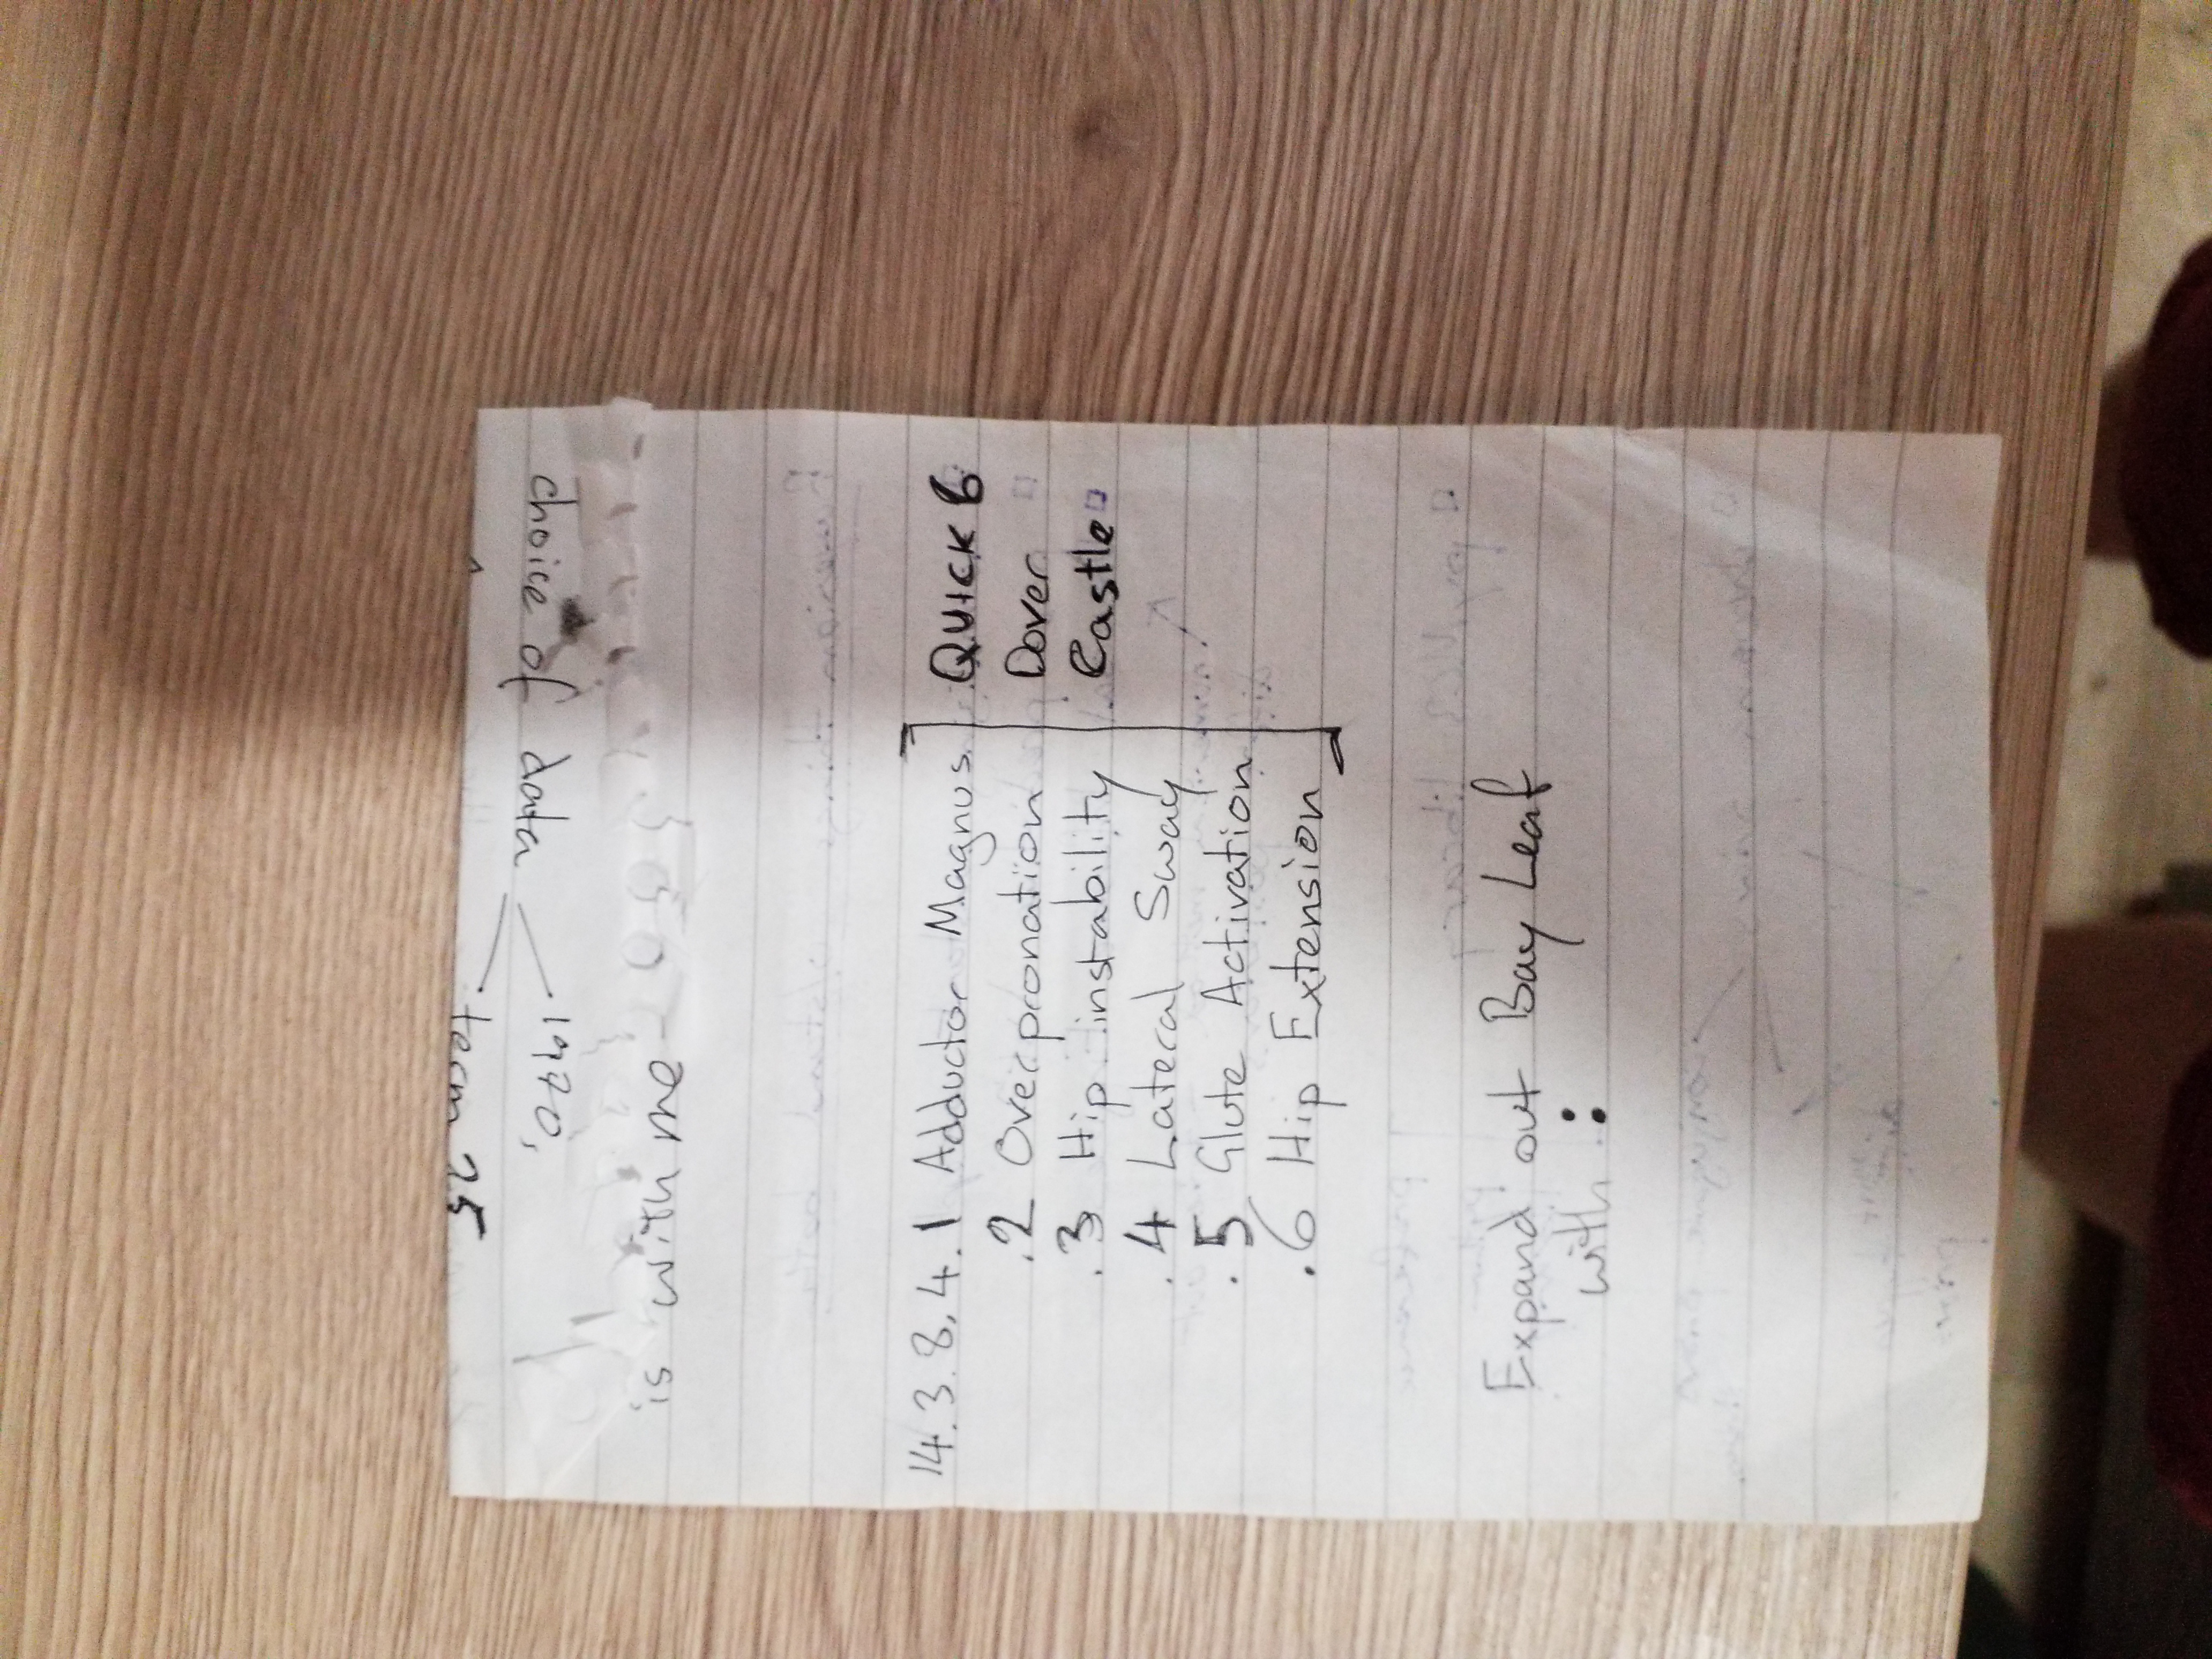 choice of data
1970,
is with me
14.3.8.4.1 Adductor Magnus
.2 Overpronation
.3 Hip instability
.4 Lateral Sway
.5 Glute Activation
.6 Hip Extension
QUICK 6
Dover
Castle
Expand out Bay Leaf
with: